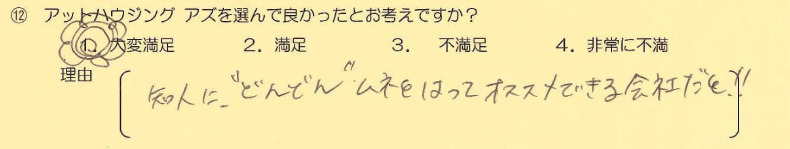 ⑫ アットハウジング アズを選んで良かったとお考えですか？
1．大変満足 2．満足 3． 不満足 4．非常に不満
理由
知人に、"どんどん"ムネをはってオススメできる会社だと!!